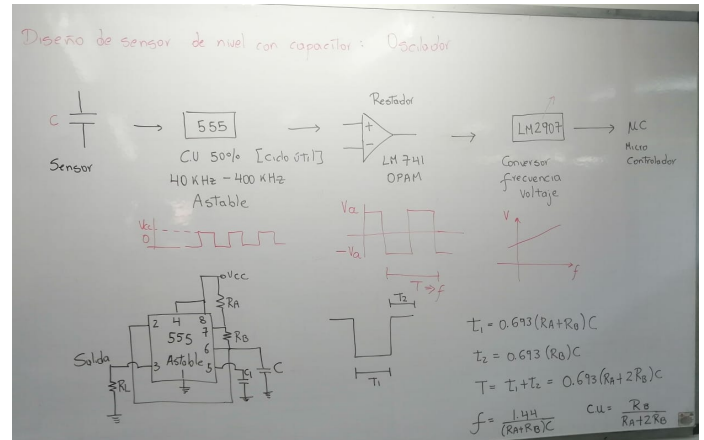 Diseño de sensor de nivel con capacitor: Oscilador
C
Sensor
555
CU 50% [Ciclo útil]
40 KHz - 400 KHz
Astable
Restador
+
-
LM 741
OPAM
LM2907
Conversor
frecuencia
Voltaje
μC
Micro
Controlador
0
Va
-Va
T⇒f
V
f
Vcc
RA
2 4 8
7
RB
555
6
Astable
Salida
3
5
C1
C
RL
T2
T1
t1 = 0.693(RA+RB)C
t2 = 0.693 (RB)C
T = t1+t2 = 0.693(RA+2RB)C
f = 1.44/(RA+RB)C CU = RB/RA+2RB